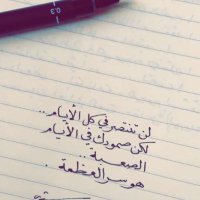 0.3
لن تنتصر في كل الأيام..
لكن صمودك في الأيام
الصعبة..
هو سر العظمة.